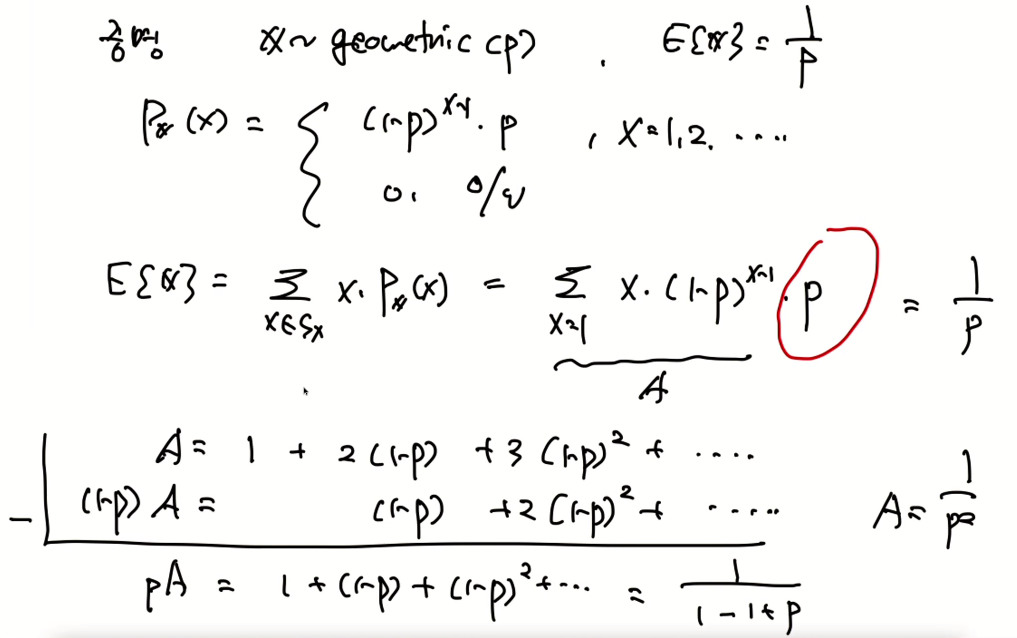 X ~ geometric (p) . E{X} = 1/p
P_X(x) = { (1-p)^{x-1} · p , x=1,2. ....
0. o/w
E{X} = Σ_{x∈S_X} x · P_X(x) = Σ_{x=1} x · (1-p)^{x-1} · p = 1/p
A
A = 1 + 2(1-p) + 3(1-p)^2 + ....
- (1-p) A = (1-p) + 2(1-p)^2 + ..... A = 1/p^2
pA = 1 + (1-p) + (1-p)^2 + ... = 1/(1-1+p)